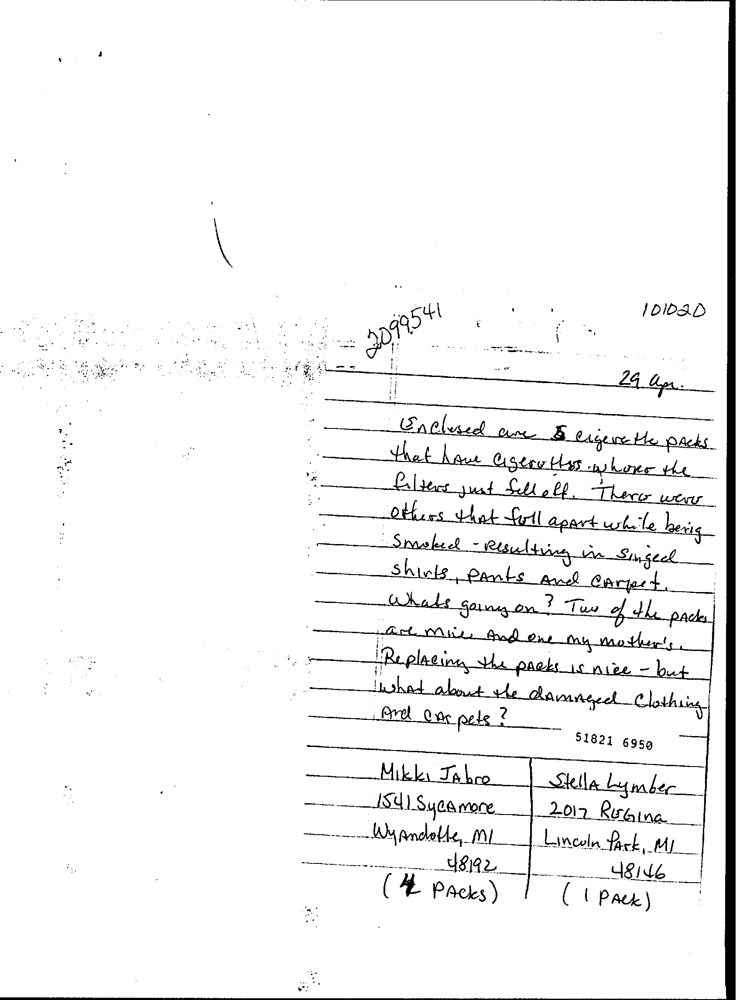 101020
2099541
29 Apr.
Enclosed are 5 cigerette packs
that have cigerettes whose the
filters just fell off. There were
others that fell apart while being
smoked - resulting in singed
shirts, pants and carpet.
Whats going on? Two of the packs
are mine and one my mother's.
Replacing the packs is nice - but
what about the damaged clothing
and carpets?
51821 6950
Mikki Jabro
1541 Sycamore
Wyandotte, MI
48192
(4 Packs)
Stella Lymber
2017 Regina
Lincoln Park, MI
48146
(1 Pack)